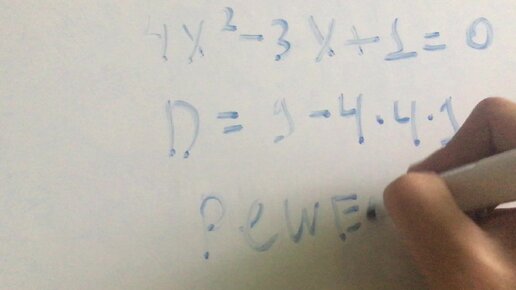 4x² - 3x + 1 = 0
D = 9 - 4·4·1
Реше